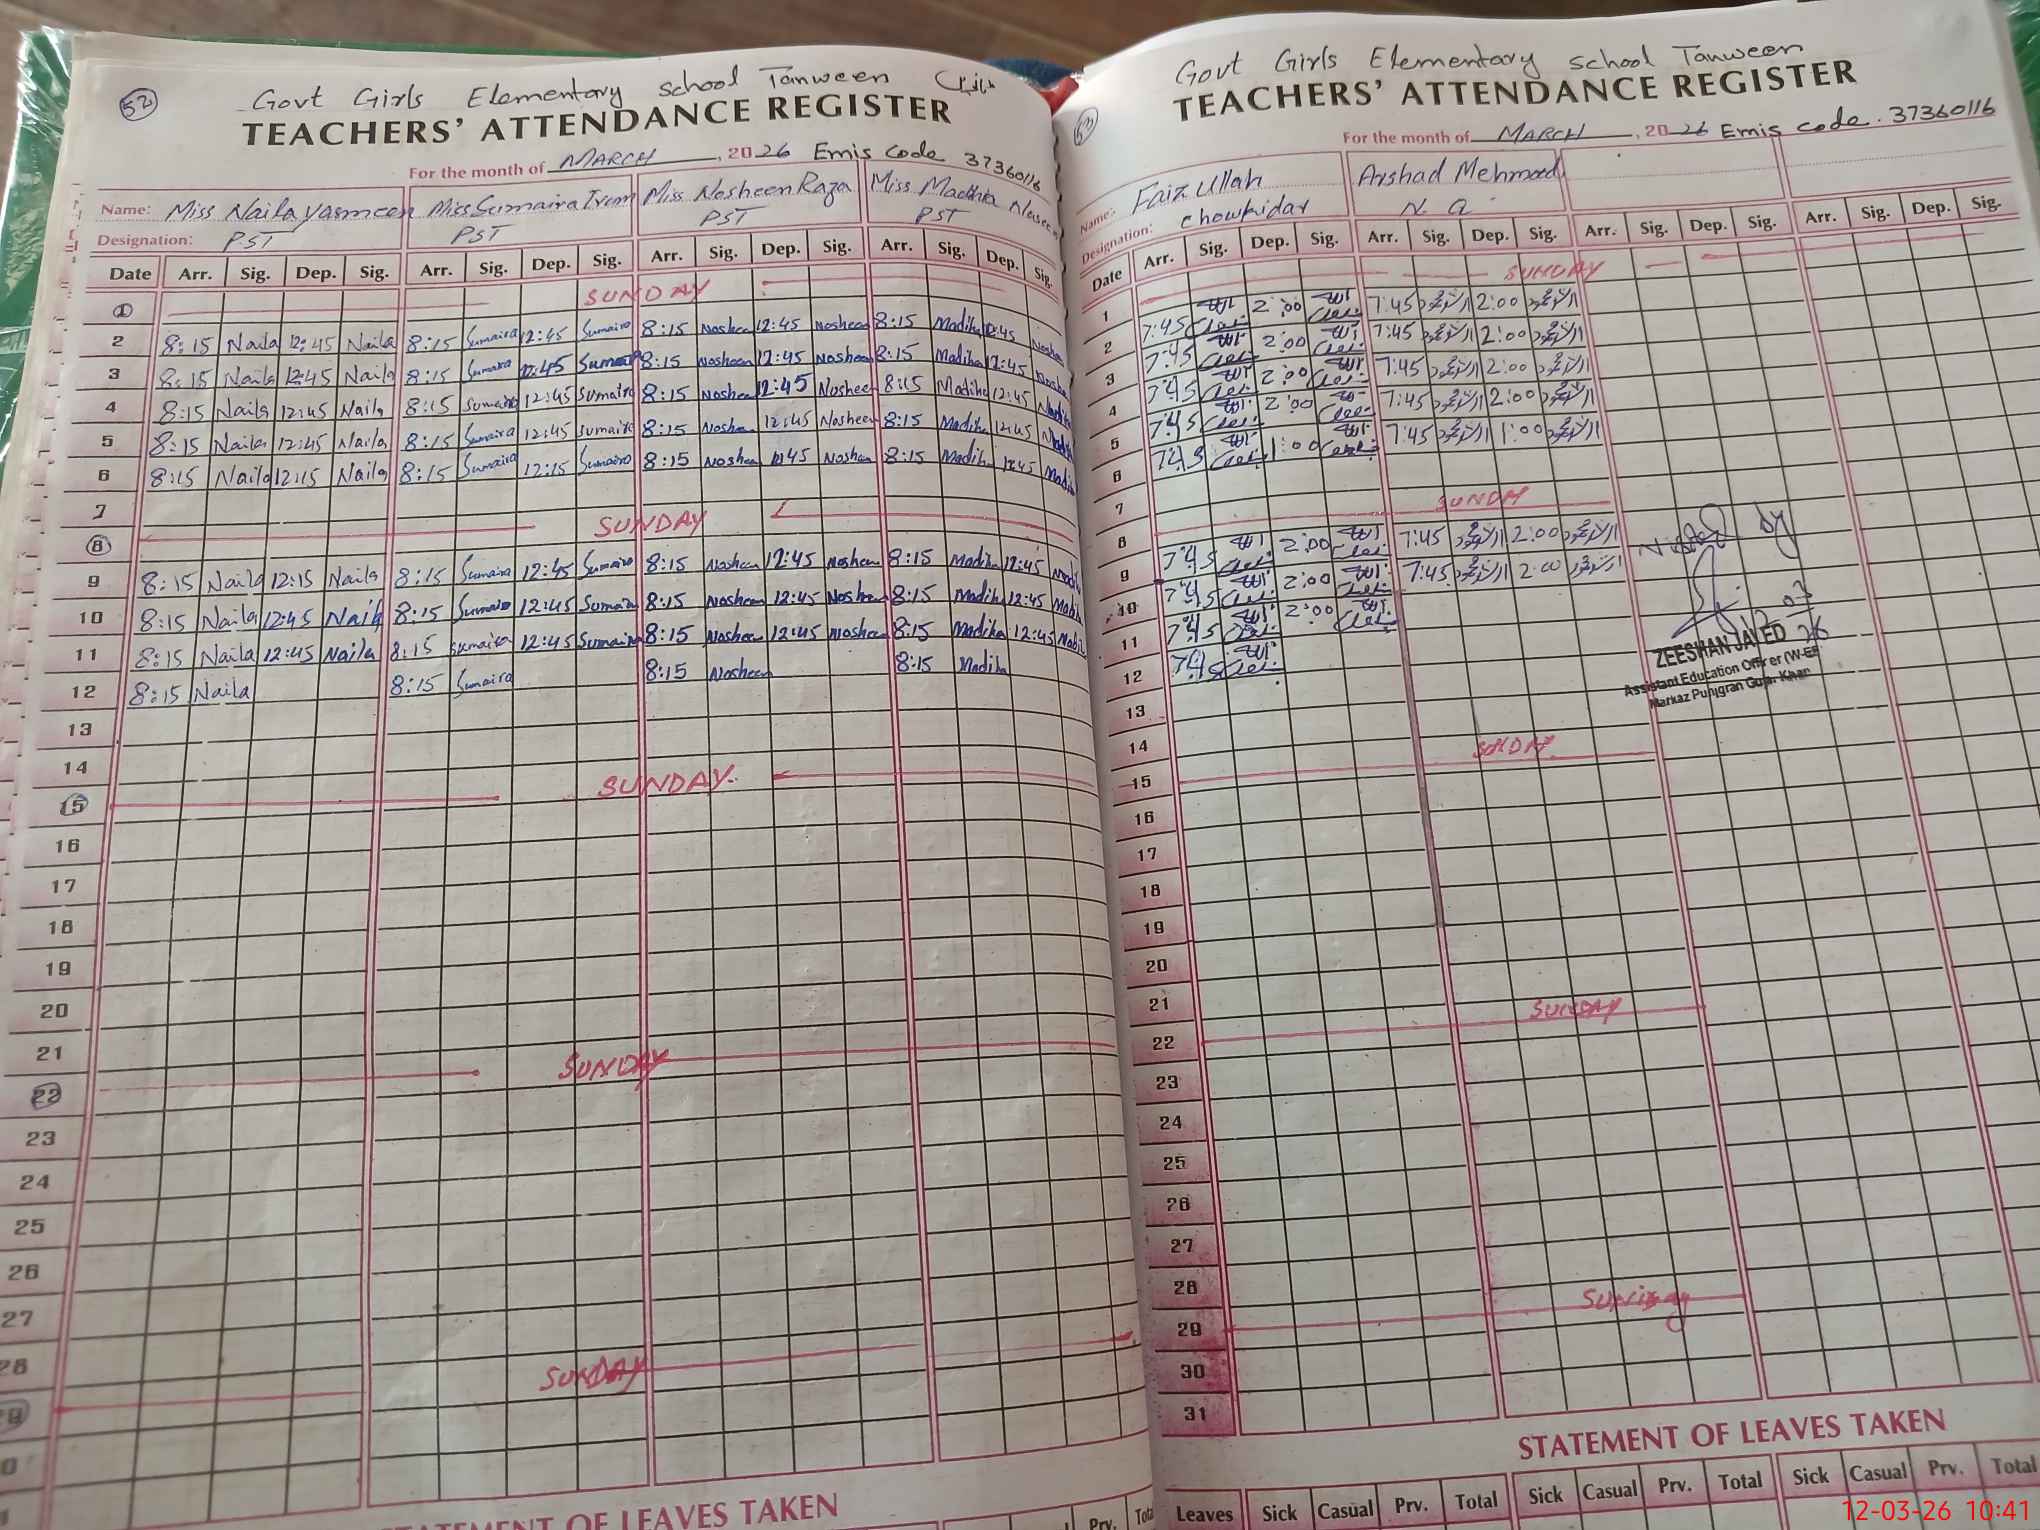 52
Govt Girls Elementary school Tanween
TEACHERS' ATTENDANCE REGISTER
For the month of MARCH, 2026 Emis Code 37360116
Name: Miss Naila Yasmeen Miss Sumaira Irem Miss Nosheen Raza Miss Madiha
Designation: PST PST PST PST
Date Arr. Sig. Dep. Sig. Arr. Sig. Dep. Sig. Arr. Sig. Dep. Sig. Arr. Sig. Dep. Sig.
1 SUNDAY
2 8:15 Naila 12:45 Naila 8:15 Sumaira 12:45 Sumaira 8:15 Nosheen 12:45 Nosheen 8:15 Madiha 12:45
3 8:15 Naila 12:45 Naila 8:15 Sumaira 12:45 Sumaira 8:15 Nosheen 12:45 Nosheen 8:15 Madiha 12:45
4 8:15 Naila 12:45 Naila 8:15 Sumaira 12:45 Sumaira 8:15 Nosheen 12:45 Nosheen 8:15 Madiha 12:45 Madiha
5 8:15 Naila 12:45 Naila 8:15 Sumaira 12:45 Sumaira 8:15 Nosheen 12:45 Nosheen 8:15 Madiha 12:45 Madiha
6 8:15 Naila 12:15 Naila 8:15 Sumaira 12:15 Sumaira 8:15 Nosheen Nosheen 8:15 Madiha 12:45 Madiha
7
8 SUNDAY
9 8:15 Naila 12:15 Naila 8:15 Sumaira 12:45 Sumaira 8:15 Nosheen 12:45 Nosheen 8:15 Madiha 12:45 Madiha
10 8:15 Naila 12:45 Naila 8:15 Sumaira 12:45 Sumaira 8:15 Nosheen 12:45 Nosheen 8:15 Madiha 12:45 Madiha
11 8:15 Naila 12:45 Naila 8:15 Sumaira 12:45 Sumaira 8:15 Nosheen 12:45 Nosheen 8:15 Madiha 12:45 Madiha
12 8:15 Naila 8:15 Sumaira 8:15 Nosheen 8:15 Madiha
13
14
15 SUNDAY
16
17
18
19
20
21
22 SUNDAY
23
24
25
26
27
28
29 SUNDAY
STATEMENT OF LEAVES TAKEN
Prv.
53
Govt Girls Elementary school Tanween
TEACHERS' ATTENDANCE REGISTER
For the month of MARCH, 2026 Emis code. 37360116
Name: Faiz Ullah Arshad Mehmood
Designation: Chowkidar N.Q.
Date Arr. Sig. Dep. Sig. Arr. Sig. Dep. Sig. Arr. Sig. Dep. Sig. Arr. Sig. Dep. Sig.
1 SUNDAY
2 7:45 2:00 7:45 2:00
3 7:45 2:00 7:45 2:00
4 7:45 2:00 7:45 2:00
5 7:45 2:00 7:45 2:00
6 7:45 1:00 7:45 1:00
7
8 SUNDAY
9 7:45 2:00 7:45 2:00
10 7:45 2:00 7:45 2:00
11 7:45 2:00
12 7:45
13
14
15 SUNDAY
16
17
18
19
20
21
22 SUNDAY
23
24
25
26
27
28
29 Sunday
30
31
Visited by
ZEESHAN JAVED
Assistant Education Officer (W-EE
Markaz Punjgran Gujar Khan
STATEMENT OF LEAVES TAKEN
Leaves Sick Casual Prv. Total Sick Casual Prv. Total Sick Casual Prv. Total
12-03-26 10:41